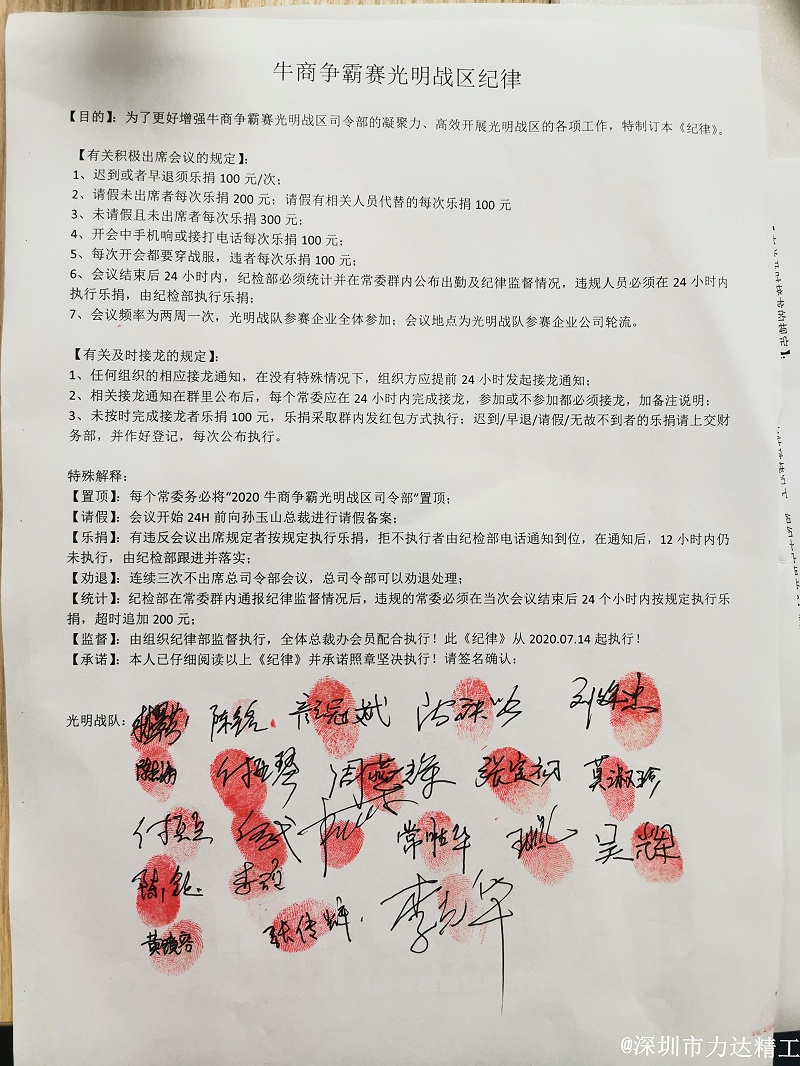 牛商争霸赛光明战区纪律
【目的】：为了更好增强牛商争霸赛光明战区司令部的凝聚力、高效开展光明战区的各项工作，特制订本《纪律》。
【有关积极出席会议的规定】：
1、迟到或者早退须乐捐 100 元/次；
2、请假未出席者每次乐捐 200 元；请假有相关人员代替的每次乐捐 100 元
3、未请假且未出席者每次乐捐 300 元；
4、开会中手机响或接打电话每次乐捐 100 元；
5、每次开会都要穿战服，违者每次乐捐 100 元；
6、会议结束后 24 小时内，纪检部必须统计并在常委群内公布出勤及纪律监督情况，违规人员必须在 24 小时内
执行乐捐，由纪检部执行乐捐；
7、会议频率为两周一次，光明战队参赛企业全体参加；会议地点为光明战队参赛企业公司轮流。
【有关及时接龙的规定】：
1、任何组织的相应接龙通知，在没有特殊情况下，组织方应提前 24 小时发起接龙通知；
2、相关接龙通知在群里公布后，每个常委应在 24 小时内完成接龙，参加或不参加都必须接龙，加备注说明；
3、未按时完成接龙者乐捐 100 元，乐捐采取群内发红包方式执行；迟到/早退/请假/无故不到者的乐捐请上交财
务部，并作好登记，每次公布执行。
特殊解释：
【置顶】：每个常委务必将“2020 牛商争霸光明战区司令部”置顶；
【请假】：会议开始 24H 前向孙玉山总裁进行请假备案；
【乐捐】：有违反会议出席规定者按规定执行乐捐，拒不执行者由纪检部电话通知到位，在通知后，12 小时内仍
未执行，由纪检部跟进并落实；
【劝退】：连续三次不出席总司令部会议，总司令部可以劝退处理；
【统计】：纪检部在常委群内通报纪律监督情况后，违规的常委必须在当次会议结束后 24 个小时内按规定执行乐
捐，超时追加 200 元；
【监督】：由组织纪律部监督执行，全体总裁办会员配合执行！此《纪律》从 2020.07.14 起执行！
【承诺】：本人已仔细阅读以上《纪律》并承诺照章坚决执行！请签名确认：
光明战队：
莫淑玲
吴辉
张传辉
@深圳市力达精工